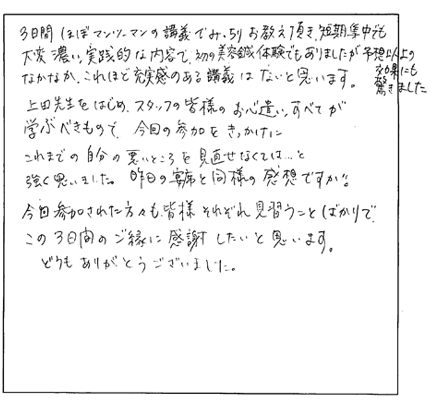 3日間ほぼマンツーマンの講義でみっちりお教え頂き、短期集中でも
大変濃い、実践的な内容で、初の美容鍼体験でもありましたが予想以上の
効果にも
驚きました
なかなか、これほど充実感のある講義はないと思います。
上田先生をはじめ、スタッフの皆様のお心遣い、すべてが
学ぶべきもので、今回の参加をきっかけに
これまでの自分の悪いところを見直せなくては…と
強く思いました。昨日の宴席と同様の感想ですが。
今回参加された方々も、皆様それぞれ見習うことばかりで、
この3日間のご縁に感謝したいと思います。
どうもありがとうございました。